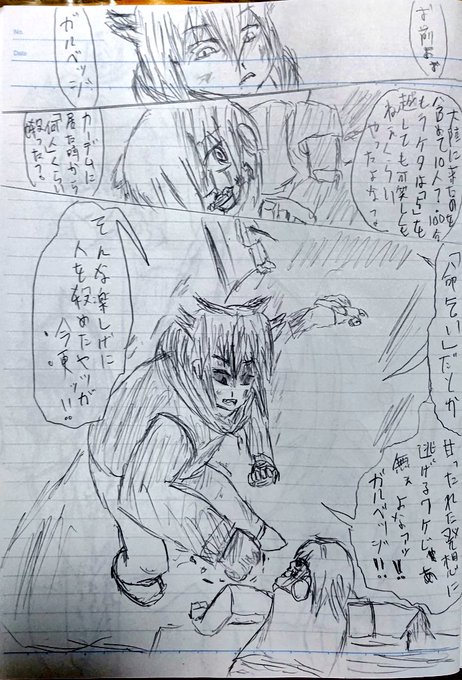 No.
Date
お前よォ
ガルベッジ
大陸に来たのも
含めて10人？100人
もうケタは「5」を
越しても可笑しくも
ねェくらい
やったよなァ？
カーテムに
居た時から
何人くらい
殺った？
「命乞い」だとか
甘ったれた発想に
逃げるワケじゃあ
無ェよなァッ!!
ガルベッジ!!
そんな楽しげに
人を殺めたヤツが
今更!!